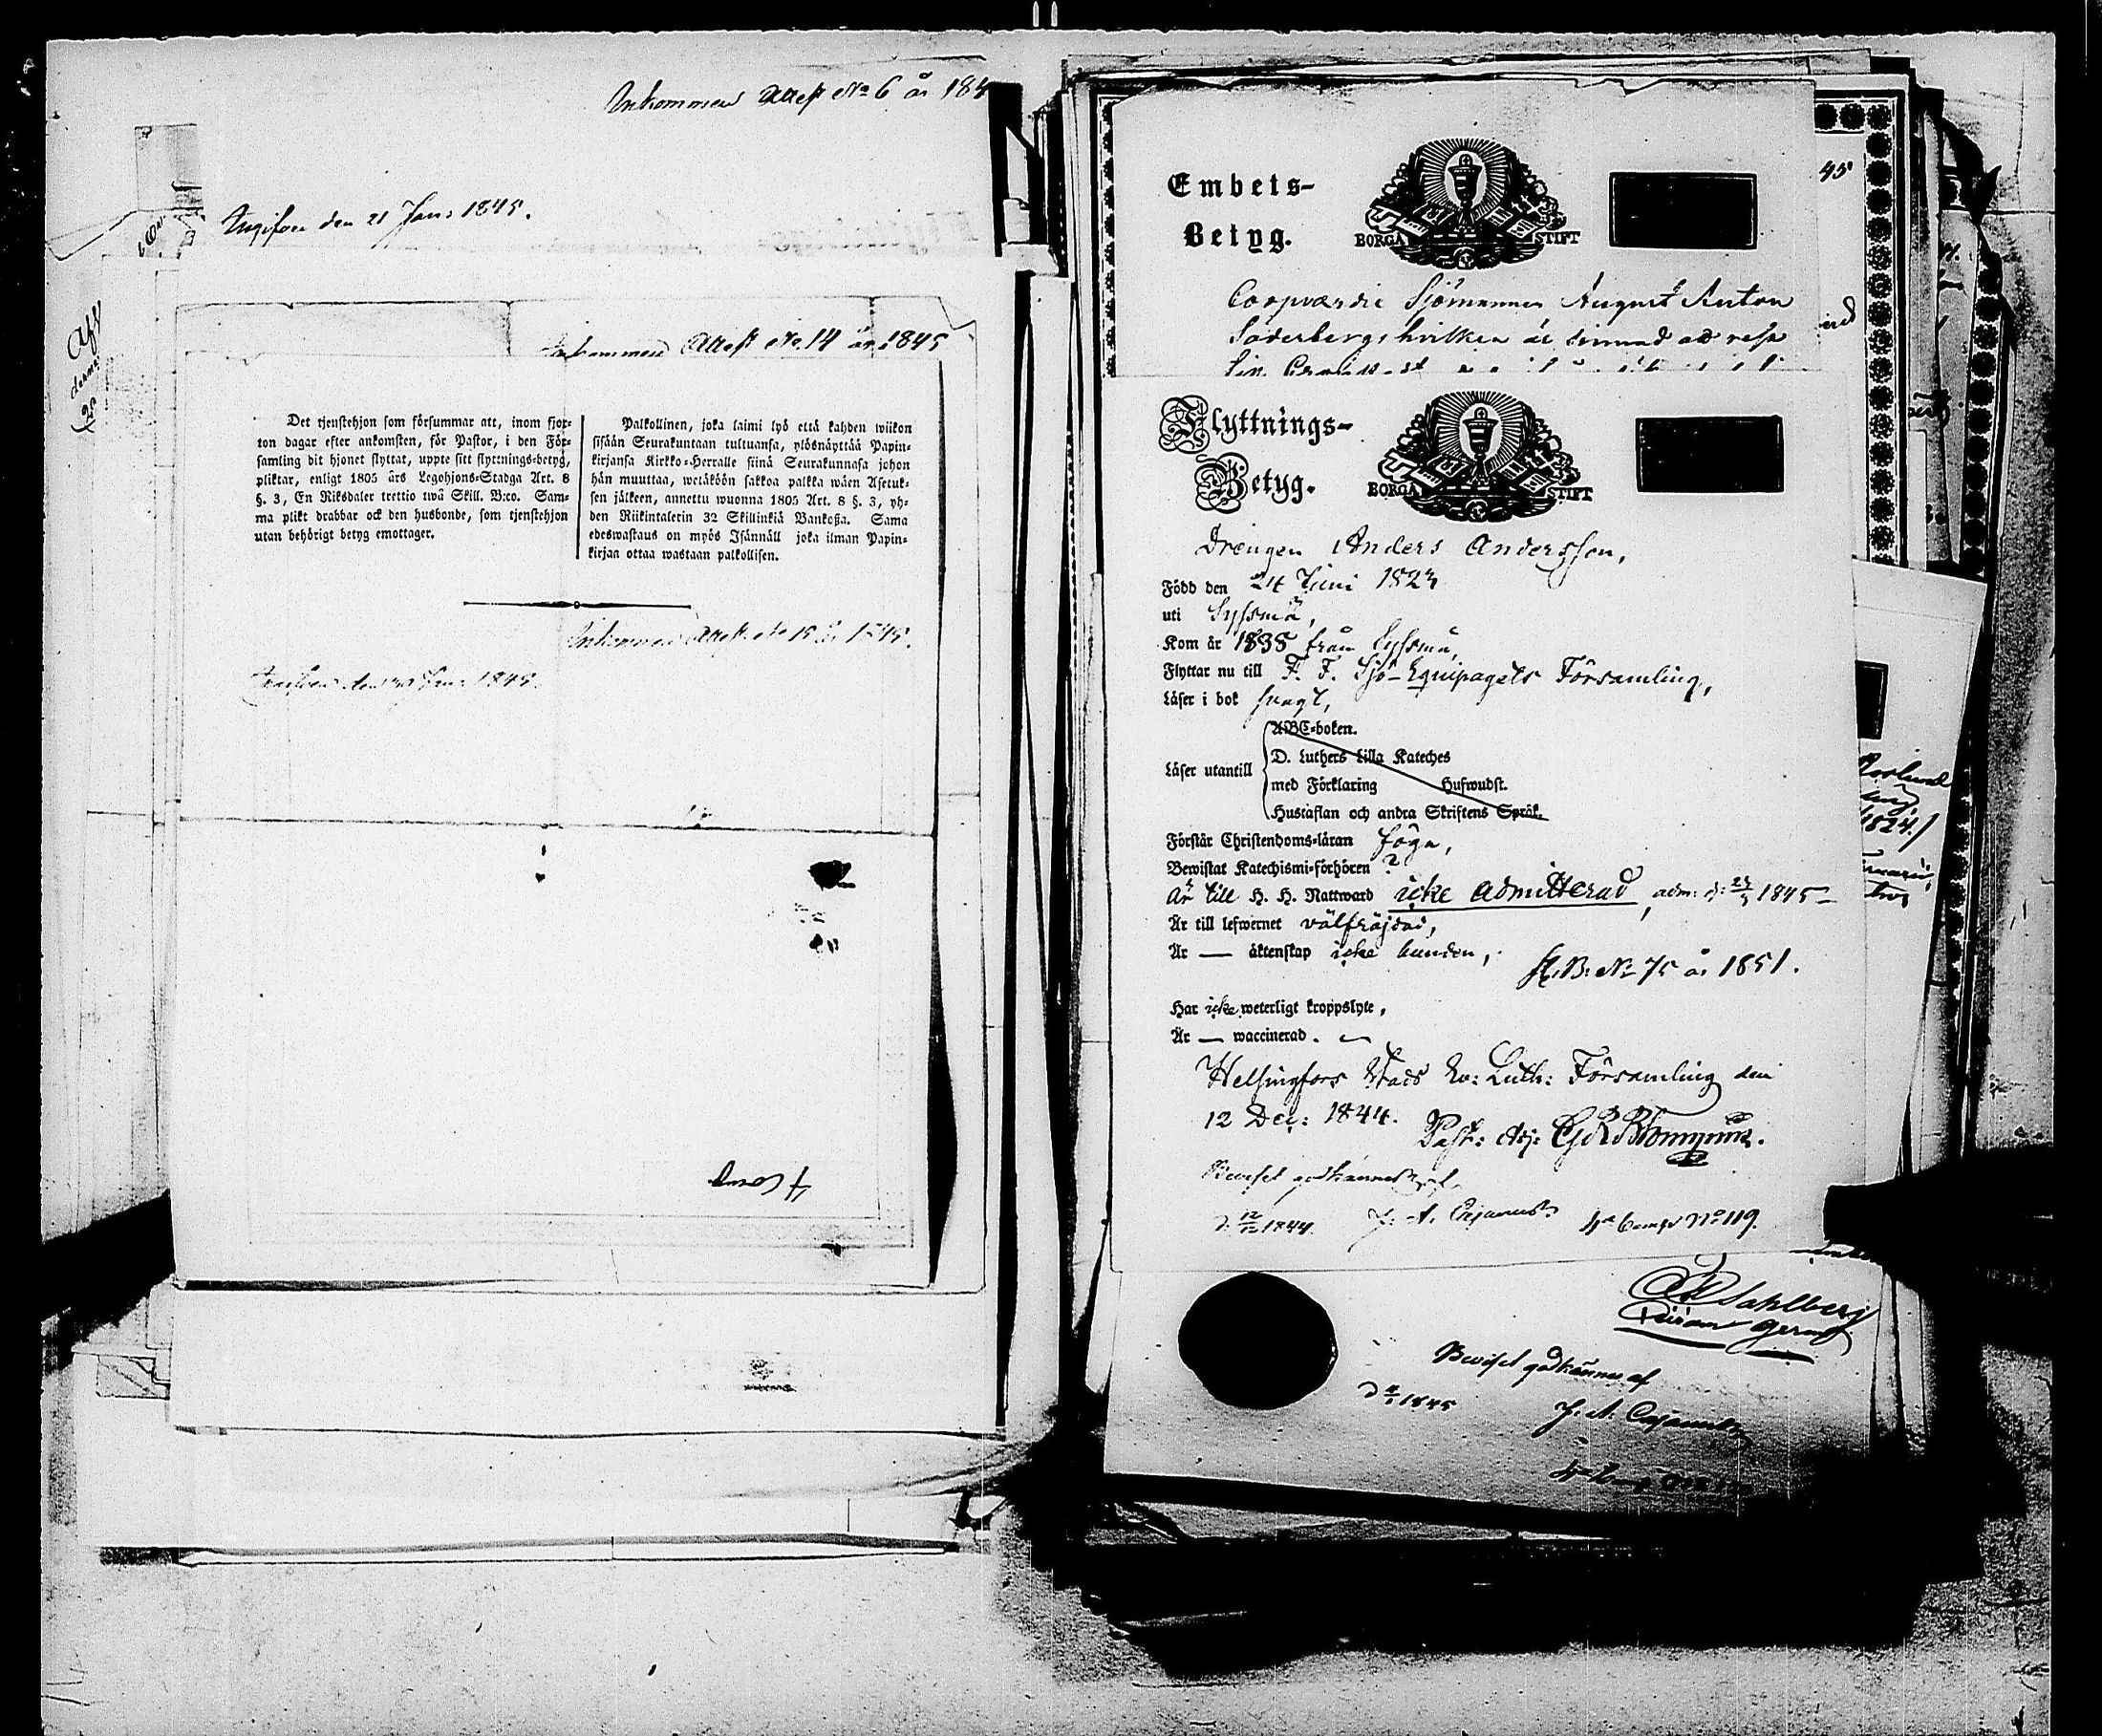 Inkommen Attest No 6 år 184
Angifven den 21 Jan: 1845.
Inkommen Attest No 14 år 1845
Det tjenstehjon som försummar att, inom fjor-
ton dagar efter ankomsten, för Pastor, i den För-
samling dit hjonet flyttat, uppte sitt flyttnings-betyg,
pliktar, enligt 1805 års Legohjons-Stadga Art. 8
§. 3, En Riksdaler trettio twå Skill. B:co. Sam-
ma plikt drabbar ock den husbonde, som tjenstehjon
utan behörigt betyg emottager.
Palkollinen, joka laimi lyö että kahden wiikon
sisään Seurakuntaan tultuansa, ylösnäyttää Papin-
kirjansa Kirkko-Herralle siinä Seurakunnasa johon
hän muuttaa, wetäköön sakkoa palkka wäen Asetuk-
sen jälkeen, annettu wuonna 1805 Art. 8 §. 3, yh-
den Riikintalerin 32 Skillinkiä Bankoßa. Sama
edeswastaus on myös Isännäll joka ilman Papin-
kirjaa ottaa wastaan palkollisen.
Inkommen Attest No 15 år 1845.
den 30 Jan: 1845.
4 Comp
Embets-
Betyg.
BORGÅ STIFT
Coopværdie Sjömannen August Anton
Söderberg, hvilken är sinnad att resa
Flyttnings-
Betyg.
BORGÅ STIFT
Drengen Anders Andersson,
Född den 24 Juni 1823
uti Syssmä,
Kom år 1838 från Syssmä,
Flyttar nu till F. F. Sjö-Equipagets Församling,
Läser i bok svagt,
Läser utantill
ABC-boken.
D. Luthers Lilla Kateches
med Förklaring Hufwudst.
Hustaflan och andra Skriftens Språk.
Förstår Christendoms-läran föga,
Bewistat Katechismi-förhören ?
Är till H. H. Nattward icke admitterad, adm: d: 23/3 1845
Är till lefwernet välfräjdad,
Är — äktenskap icke bunden,
A. B: No 75 år 1851.
Har icke weterligt kroppslyte,
Är — waccinerad.
Helsingfors Stads Ev: Luth: Församling den
12 Dec: 1844.
Past: Adj:
Beviset godkännes af
d: 12/12 1844. J. A. Cajanus
4de Comp No 119.
Sahlberg
Beviset godkännes af
1845
J: A: Cajanus
45
1824./